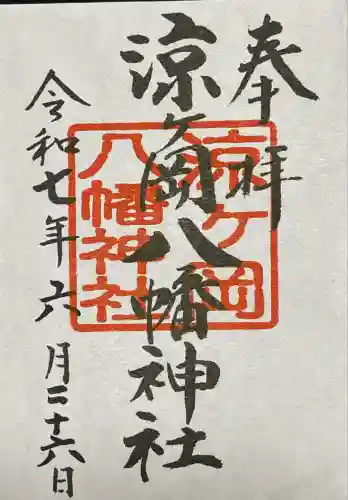 奉拝
涼ヶ岡八幡神社
涼ケ岡
八幡神社
令和七年六月二十六日